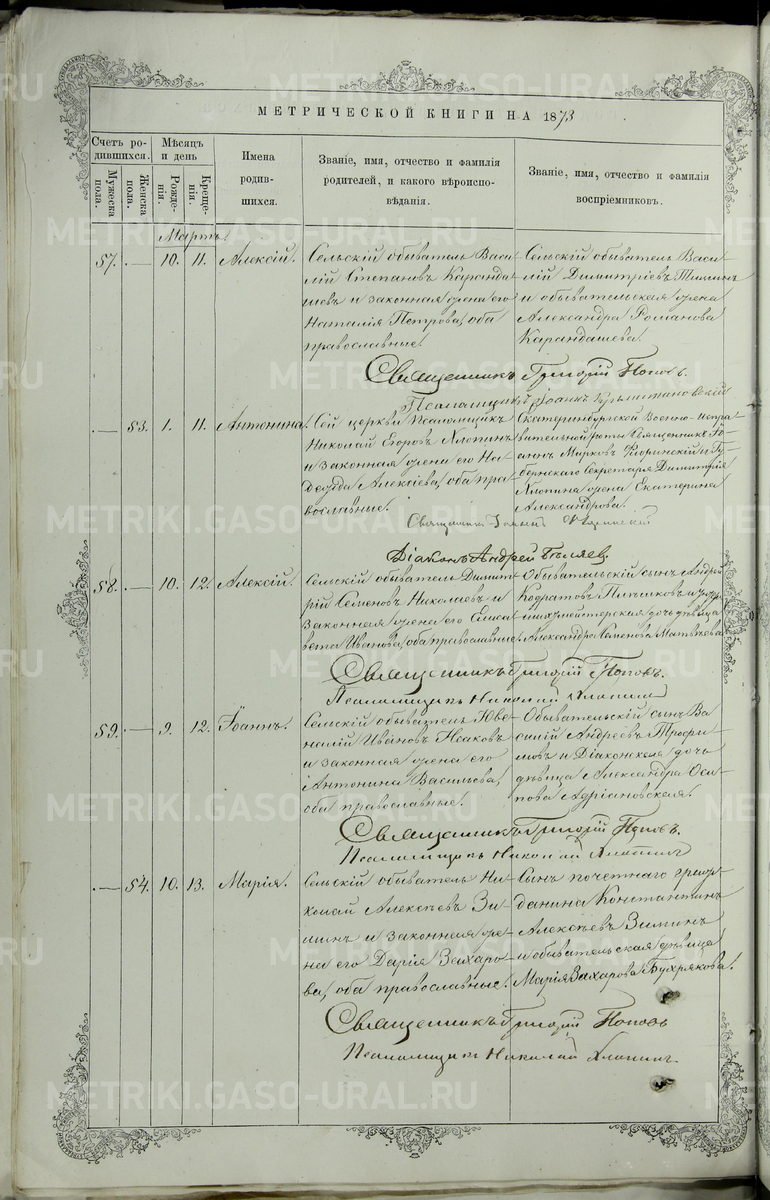 МЕТРИЧЕСКОЙ КНИГИ НА 1873
Счетъ ро-
дившихся.
Мужеска пола.
Женска пола.
Мѣсяцъ
и день
Рожде-
нія.
Креще-
нія.
Имена
родив-
шихся.
Званіе, имя, отчество и фамилія
родителей, и какого вѣроиспо-
вѣданія.
Званіе, имя, отчество и фамилія
воспріемниковъ.
Мартъ.
57. — 10. 11. Алексій.
Сельскій обыватель Васи-
лій Степановъ Каранда-
шевъ и законная жена его
Наталія Петрова, оба
православные.
Сельскій обыватель Васи-
лій Димитріевъ
и обывательская жена
Александра Романова
Карандашева.
Священникъ Григорій Поповъ.
Псаломщикъ Іоаннъ
— 53. 1. 11. Антонина.
Сей церкви Псаломщикъ
Николай Егоровъ Хлопинъ
и законная жена его На-
дежда Алексіева, оба пра-
вославные.
Екатеринбургской Военно-испра-
вительной роты Священникъ Іо-
аннъ Марковъ Флоринскій и Гу-
бернскаго Секретаря Димитрія
Хлопина жена Екатерина
Александрова.
Священникъ Іоаннъ Флоринскій
Діаконъ Андрей Бѣляев.
58. — 10. 12. Алексій.
Сельскій обыватель Димит-
рій Семеновъ Николаевъ и
законная жена его Елиса-
вета Иванова, оба православные.
Обывательскій сынъ Андрей
дочь дѣвица
Александра Семенова Матвѣева.
Священникъ Григорій Поповъ.
Псаломщикъ Николай Хлопинъ
59. — 9. 12. Іоаннъ.
Сельскій обыватель Юве-
налій Ивановъ Исаковъ
и законная жена его
Антонина Васильева,
оба православные.
Обывательскій сынъ Ва-
силій Андреевъ Трофи-
мовъ и Діаконская дочь
дѣвица Александра Оси-
пова Адріановская.
Священникъ Григорій Поповъ.
Псаломщикъ Николай Хлопинъ
— 54. 10. 13. Марія.
Сельскій обыватель Ни-
колай Алексѣевъ Зи-
минъ и законная же-
на его Дарія Захаро-
ва, оба православные.
Сынъ почетнаго граж-
данина Константинъ
Алексѣевъ Зиминъ
и обывательская дѣвица
Марія Захарова Бухрякова.
Священникъ Григорій Поповъ
Псаломщикъ Николай Хлопинъ.
METRIKI.GASO-URAL.RU